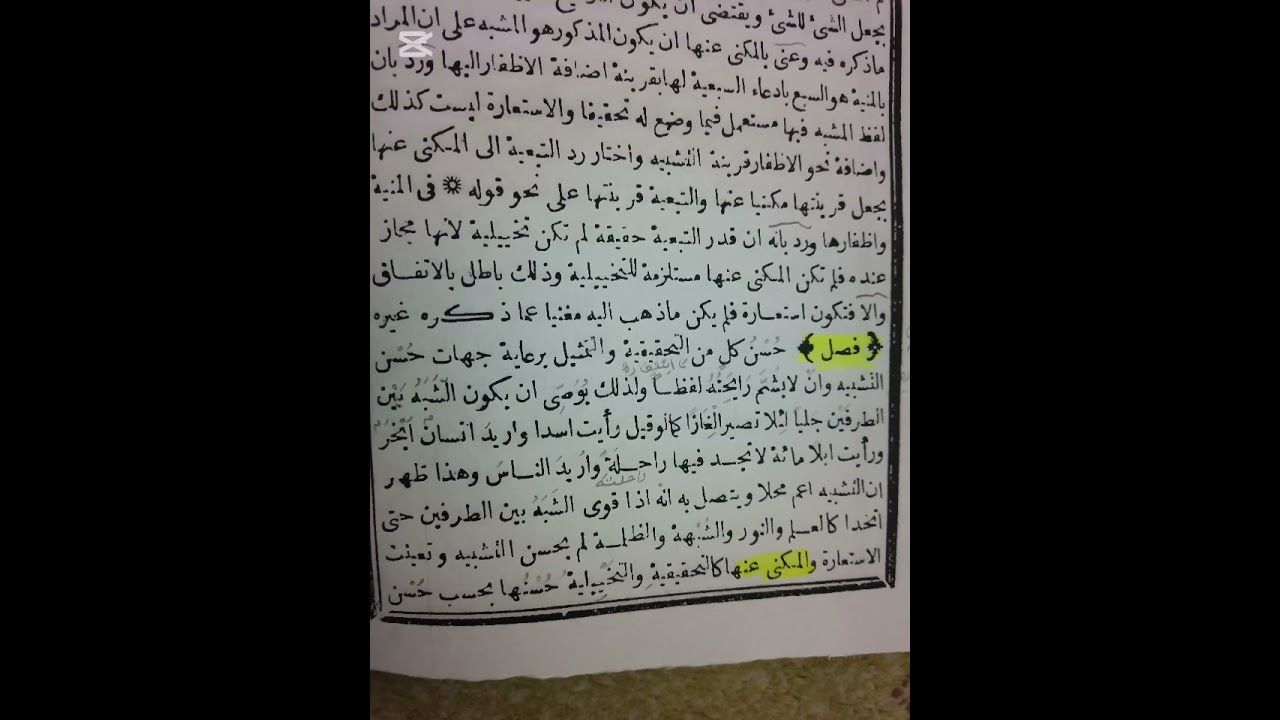 يجعل الشئ للشئ ويقتضى ان يكون
ماذكره فيه وعنى بالمكنى عنها ان يكون المذكور هو المشبه على ان المراد
بالمنية هو السبع بادعاء السبعية لها بقرينة اضافة الاظفار اليها ورد بان
لفظ المشبه فيها مستعمل فيما وضع له تحقيقا والاستعارة ليست كذلك
واضافة نحو الاظفار قرينة التشبيه واختار رد التبعية الى المكنى عنها
يجعل قرينتها مكنيا عنها والتبعية قرينتها على نحو قوله * فى المنية
واظفارها ورد بانه ان قدر التبعية حقيقة لم تكن تخييلية لانها مجاز
عنده فلم تكن المكنى عنها مستلزمة للتخييلية وذلك باطل بالاتفاق
والا فتكون استعارة فلم يكن ماذهب اليه مغنيا عما ذكره غيره
﴿ فصل ﴾ حُسْنُ كلٍ من التحقيقية والتمثيل برعاية جهات حُسْن
التشبيه وانْ لايُشَمَّ رَايِحَتُهُ لفظا ولذلك يُوَصّى ان يكون الشَّبَهُ بَيْن
الطرفَيْن جَلياً لِئلا تصير اِلْغَازًا كما لو قيل رأيت اسدا واريدَ انسانٌ اَبْخَرُ
ورأيت ابلا مائة لاتجد فيها راحلةً واُريدَ الناسُ وهذا ظهر
ان التشبيه اعم محلا ويتصل به انه اذا قوى الشَبَهُ بين الطرفين حتى
اتحدا كالعلم والنور والشُبْهة والظلمة لم يحسن التشبيه وتعينت
الاستعارة والمكنى عنها كالتحقيقية والتخييلية حُسْنُها بحسب حُسْن